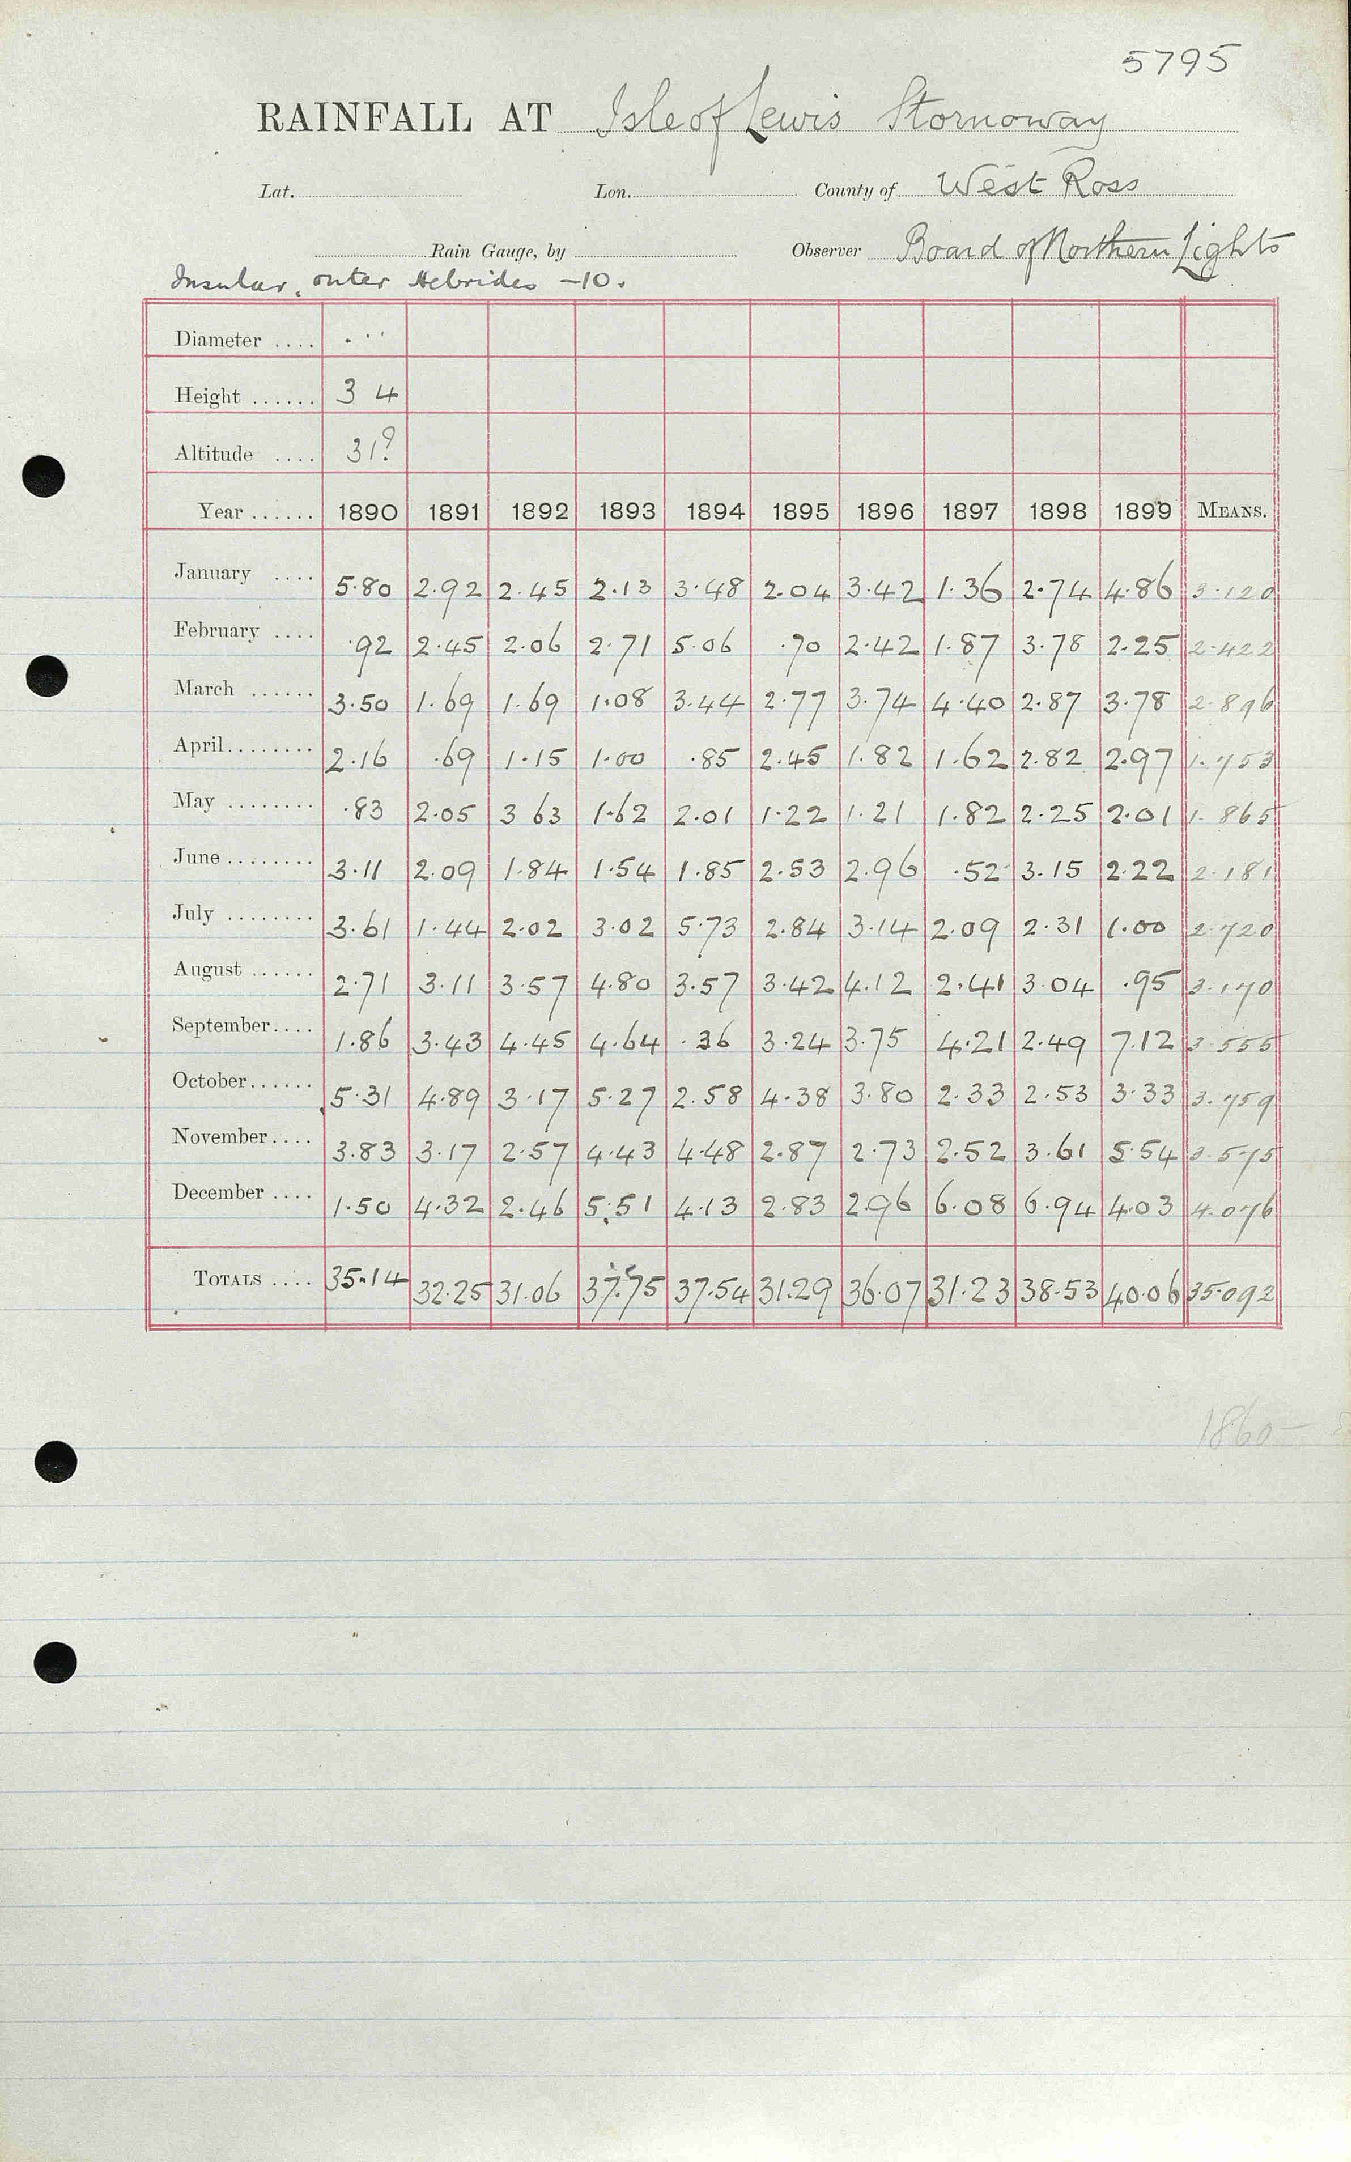 5795
RAINFALL AT Isle of Lewis Stornoway
Lat. Lon. County of West Ross
Rain Gauge, by Observer Board of Northern Lights
Insular, outer Hebrides -10.
Diameter .... . . .
Height ...... 3 4
Altitude .... 31?
Year ...... 1890 1891 1892 1893 1894 1895 1896 1897 1898 1899 MEANS.
January .... 5.80 2.92 2.45 2.13 3.48 2.04 3.42 1.36 2.74 4.86 3.120
February .... .92 2.45 2.06 2.71 5.06 .70 2.42 1.87 3.78 2.25 2.422
March ...... 3.50 1.69 1.69 1.08 3.44 2.77 3.74 4.40 2.87 3.78 2.896
April ........ 2.16 .69 1.15 1.00 .85 2.45 1.82 1.62 2.82 2.97 1.753
May ........ .83 2.05 3 63 1.62 2.01 1.22 1.21 1.82 2.25 2.01 1.865
June ........ 3.11 2.09 1.84 1.54 1.85 2.53 2.96 .52 3.15 2.22 2.181
July ........ 3.61 1.44 2.02 3.02 5.73 2.84 3.14 2.09 2.31 1.00 2.720
August ...... 2.71 3.11 3.57 4.80 3.57 3.42 4.12 2.41 3.04 .95 3.170
September .... 1.86 3.43 4.45 4.64 .36 3.24 3.75 4.21 2.49 7.12 3.555
October ...... 5.31 4.89 3.17 5.27 2.58 4.38 3.80 2.33 2.53 3.33 3.759
November .... 3.83 3.17 2.57 4.43 4.48 2.87 2.73 2.52 3.61 5.54 3.575
December .... 1.50 4.32 2.46 5.51 4.13 2.83 2.96 6.08 6.94 4.03 4.076
TOTALS .... 35.14 32.25 31.06 37.75 37.54 31.29 36.07 31.23 38.53 40.06 35.092
1860-